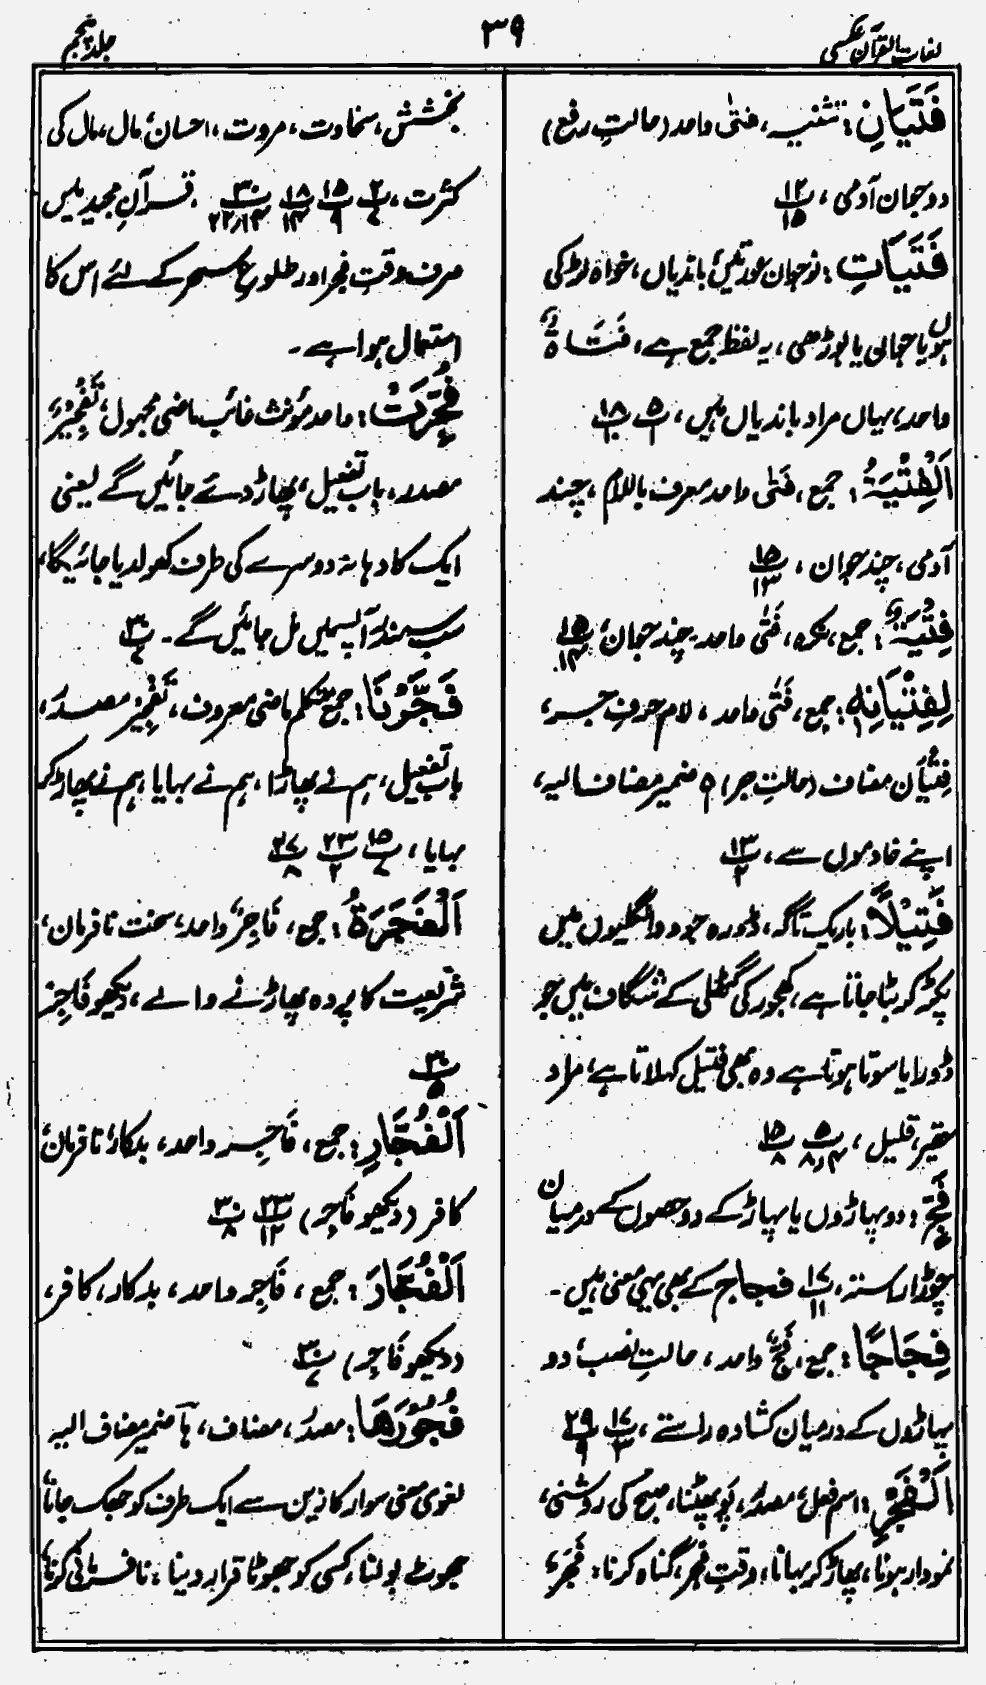 لغات القرآن عکسی
۳۹
جلد پنجم
فَتَیَانِ: تثنیہ، فتیٰ واحد (حالتِ رفع)
دو جوان آدمی، ۱۲/۱۵
فَتَیَاتِ: نوجوان عورتیں، باندیاں، خواہ لڑکی
ہوں یا جوان یا بوڑھی، یہ لفظ جمع ہے، فَتَاۃٌ
واحد، یہاں مراد باندیاں ہیں، ۵/۱ ۱۸/۱۰
اَلْفِتْیَۃُ: جمع، فَتٰی واحد معرف باللام، چند
آدمی، چند جوان، ۱۵/۱۳
فِتْیَۃٌ: جمع، نکرہ، فَتٰی واحد۔ چند جوان، ۱۵/۱۳
لِفِتْیَانِہٖ: جمع، فَتٰی واحد، لام حرفِ جر،
فِتْیَان مضاف (حالتِ جر) ہٖ ضمیر مضاف الیہ،
اپنے خادموں سے، ۱۳/۲
فَتِیْلًا: باریک تاگہ، ڈورہ جو دو انگلیوں میں
پکڑ کر بٹا جاتا ہے، کھجور کی گٹھلی کے شگاف میں جو
ڈورا یا سوتا ہوتا ہے وہ بھی فتیل کہلاتا ہے، مراد
حقیر، قلیل، ۵/۸،۴ ۱۵/۸
فَجٍّ: دو پہاڑوں یا پہاڑ کے دو حصوں کے درمیان
چوڑا راستہ، ۱۷/۱۱ فجاج کے بھی یہی معنی ہیں۔
فِجَاجًا: جمع، فَجٌّ واحد، حالتِ نصب، دو
پہاڑوں کے درمیان کشادہ راستے، ۱۷/۳ ۲۹/۹
اَلْفَجْرِ: اسم فعل، مصدر، پَو پھٹنا، صبح کی روشنی،
نمودار ہونا، پھاڑ کر بہانا، وقتِ فجر، گناہ کرنا؛ فَجَرَ،
بخشش، سخاوت، مروت، احسان، مال، مال کی
کثرت، ۲/۷ ۱۵/۹ ۱۸/۱۴ ۳۰/۲۲،۱۴، قرآنِ مجید میں
صرف وقتِ فجر اور طلوعِ سحر کے لئے اس کا
استعمال ہوا ہے۔
فُجِّرَتْ: واحد مؤنث غائب ماضی مجہول، تَفْجِیْرٌ
مصدر، باب تفعیل، پھاڑ دئے جائیں گے یعنی
ایک کا دہانہ دوسرے کی طرف کھول دیا جائیگا،
سب سمندر آپسمیں مل جائیں گے۔ ۳۰/۷
فَجَّرْنَا: جمع متکلم ماضی معروف، تَفْجِیْر مصدر،
باب تفعیل، ہم نے پھاڑا، ہم نے بہایا، ہم نے پھاڑ کر
بہایا، ۱۵/۷ ۲۳/۲ ۲۷/۸
اَلْفَجَرَۃُ: جمع، فَاجِرٌ واحد، سخت نافرمان،
شریعت کا پردہ پھاڑنے والے، دیکھو فَاجِرٌ
۳۰/۵
اَلْفُجَّارِ: جمع، فَاجِر واحد، بدکار، نافرمان،
کافر (دیکھو فاجر) ۲۳/۱۲ ۳۰/۸
اَلْفُجَّارَ: جمع، فَاجِر واحد، بدکار، کافر،
(دیکھو فَاجِر) ۳۰/۷
فُجُوْرَھَا: مصدر، مضاف، ہَا ضمیر مضاف الیہ
لغوی معنی سوار کا زین سے ایک طرف کو جھک جانا،
جھوٹ بولنا، کسی کو جھوٹا قرار دینا؛ نافرمانی کرنا،